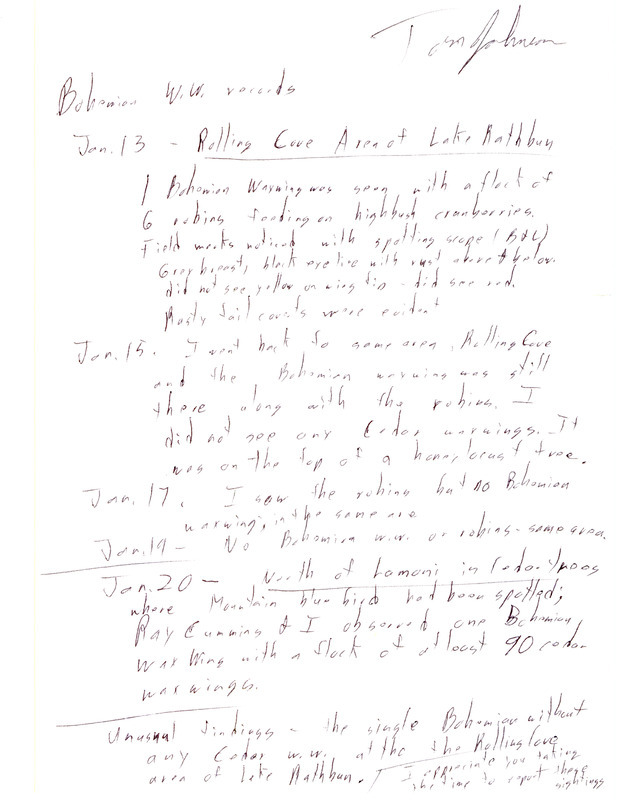 Tom Johnson
Bohemian W.W. records
Jan. 13 - Rolling Cove Area of Lake Rathbun
1 Bohemian Waxwing was seen with a flock of
6 robins feeding on highbush cranberries.
Field marks noticed with spotting scope (B&L)
Grey breast, black eye line with rust above & below.
did not see yellow on wing tip - did see red.
Rusty tail coverts were evident
Jan. 15. I went back to same area, Rolling Cove
and the Bohemian waxwing was still
there along with the robins. I
did not see any Cedar waxwings. It
was on the top of a honey locust tree.
Jan. 17. I saw the robins but no Bohemian
waxwing, in the same are
Jan. 19 - No Bohemian w.w. or robins - same area.
Jan. 20 - North of Lamoni in Cedar
where Mountain blue bird had been spotted;
Ray Cummins & I observed one Bohemian
Wax Wing with a flock of at least 90 cedar
waxwings.
Unusual findings - the single Bohemian without
any Cedar w.w. at the the Rolling Cove
area of Lake Rathbun. I appreciate you taking
the time to report these
sightings